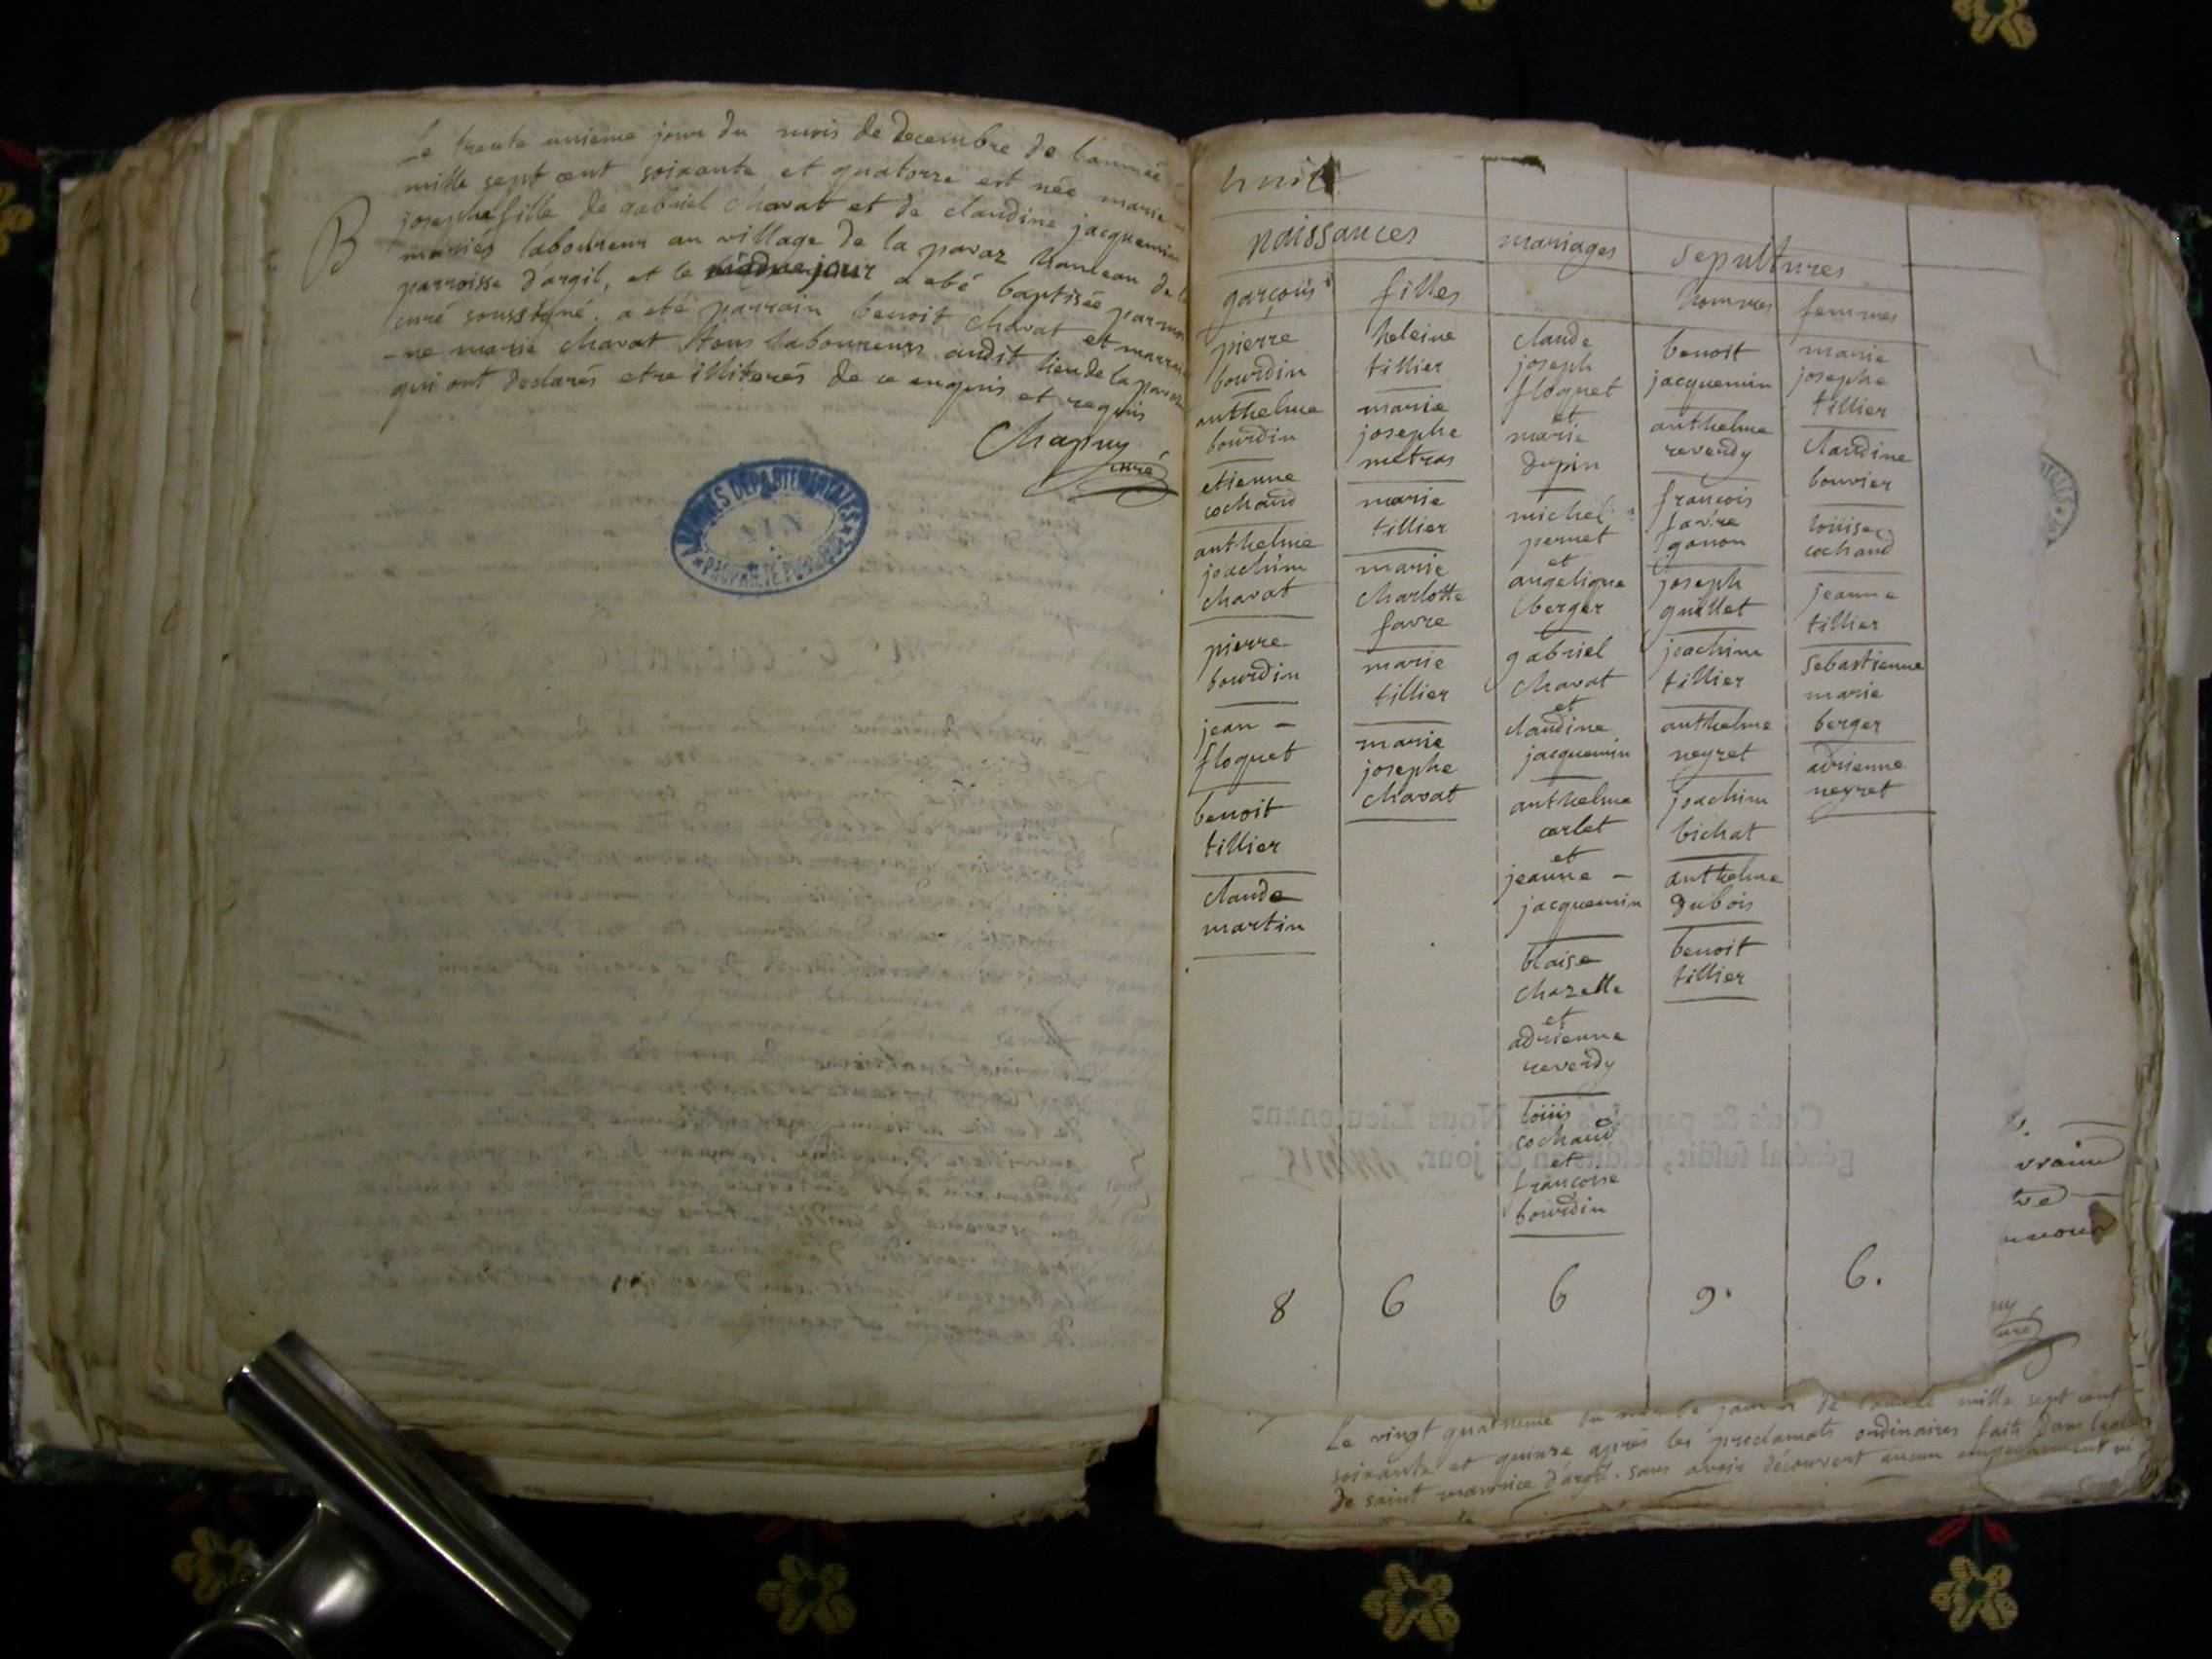 Le trente unieme jour du mois de decembre de l'année
mille sept cent soixante et quatorze est née marie
josephe fille de gabriel chavat et de claudine jacquemin
B
mariés laboureurs au village de la pavaz hameau de la
parroisse d'argil, et le même jour a eté baptisée par moi
curé soussigné. a eté parrain benoit chavat et marrai
-ne marie chavat tous laboureurs audit lieu de la pavaz
qui ont declarés etre illiterés de ce enquis et requis
Chapuy
curé
ARCHIVES DEPARTEMENTALES
AIN
PROPRIETE PUBLIQUE
huit
naissances
mariages
sepultures
garçons
filles
hommes
femmes
pierre
bourdin
anthelme
bourdin
etienne
cochand
anthelme
joachim
chavat
pierre
bourdin
jean -
floquet
benoit
tillier
claude
martin
8
heleine
tillier
marie
josephe
metras
marie
tillier
marie
charlotte
favre
marie
tillier
marie
josephe
chavat
6
claude
joseph
floquet
et
marie
dupin
michel
pernet
et
angelique
berger
gabriel
chavat
et
claudine
jacquemin
anthelme
carlet
et
jeanne -
jacquemin
blaise
chazelle
et
adrienne
reverdy
loüis
cochand
et
francoise
bourdin
6
benoit
jacquemin
anthelme
reverdy
francois
favre
gonon
joseph
guillet
joachim
tillier
anthelme
neyret
joachim
bichat
anthelme
dubois
benoit
tillier
9.
marie
josephe
tillier
claudine
bouvier
loüise
cochand
jeanne
tillier
sebastienne
marie
berger
adrienne
neyret
6.
Le vingt quatrieme du mois de janvier de l'année mille sept cent
soixante et quinze après les proclamats ordinaires faits dans l'eglise
de saint maurice d'argil. sans avoir découvert aucun empechement ni